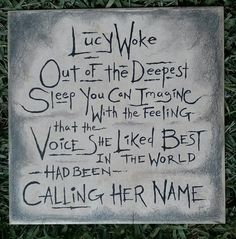 Lucy Woke
Out of the Deepest
Sleep You Can Imagine
With the Feeling
that the
Voice She Liked Best
In the World
Had Been
Calling Her Name